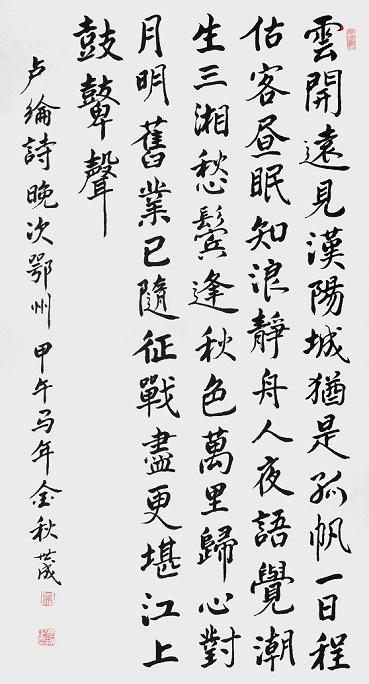 雲開遠見漢陽城猶是孤帆一日程
估客昼眠知浪靜舟人夜語覺潮
生三湘愁鬢逢秋色萬里歸心對
月明舊業已隨征戰盡更堪江上
鼓鼙聲
卢綸詩晚次鄂州 甲午马年金秋